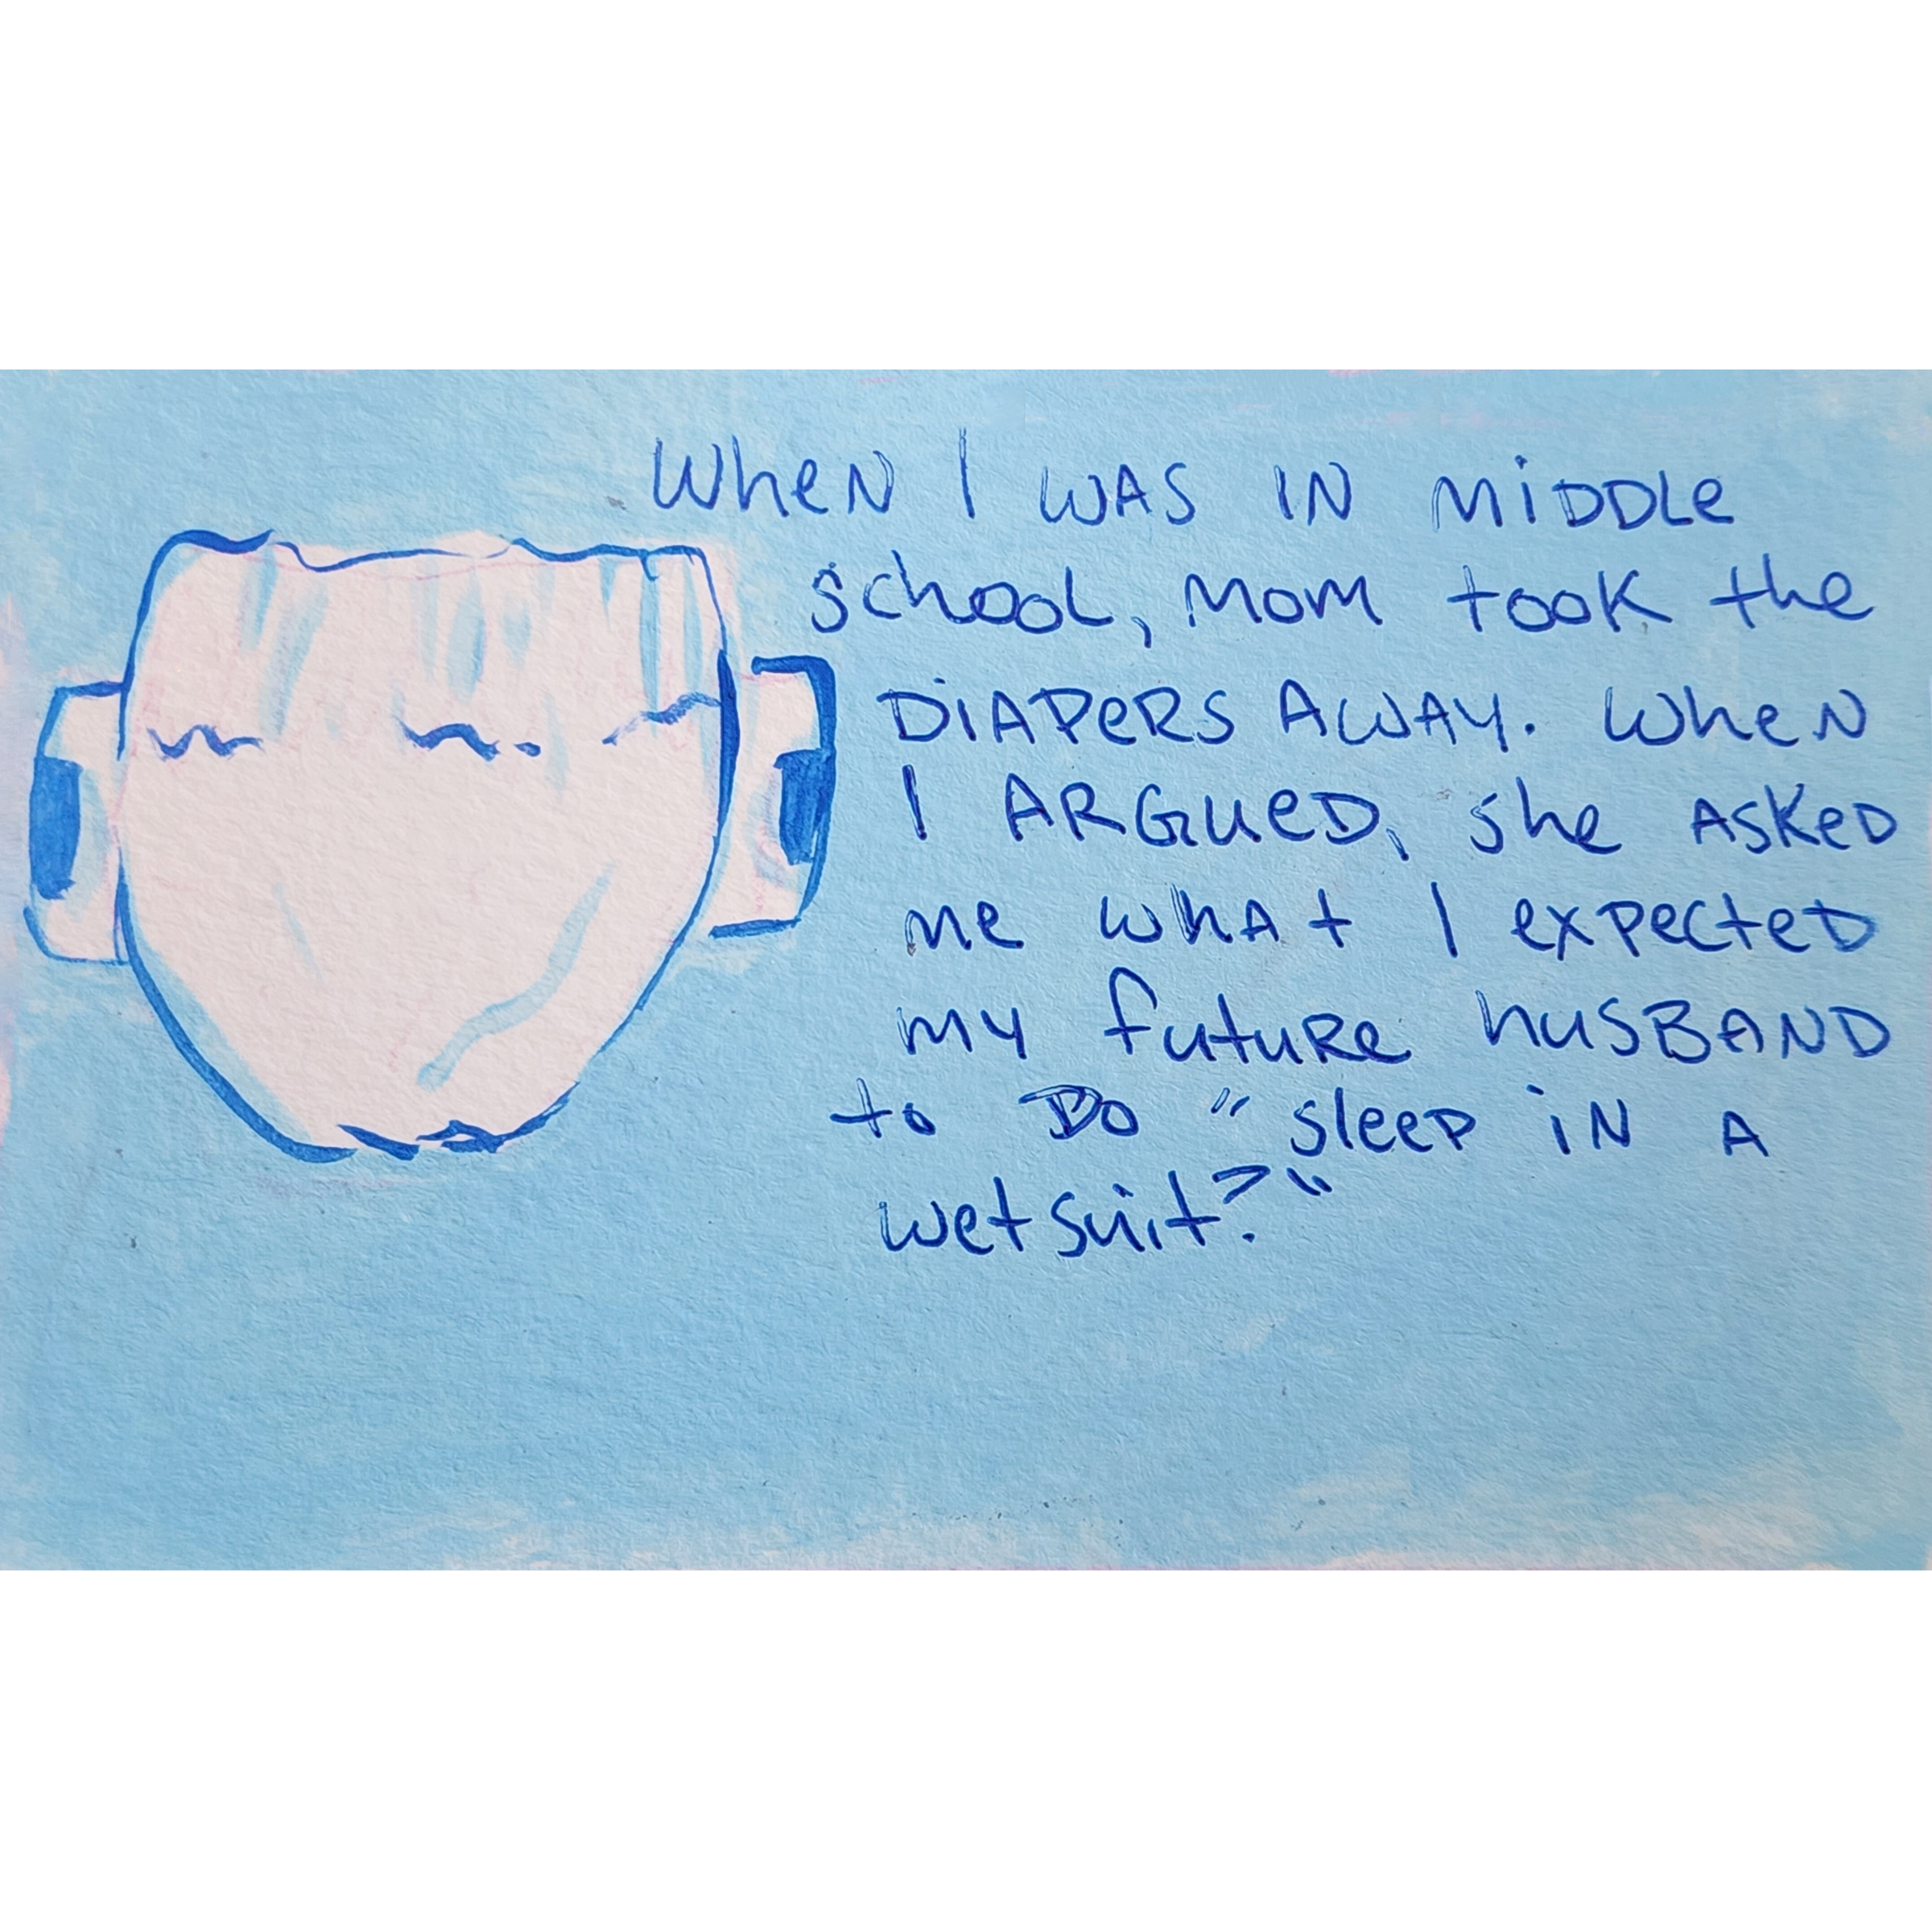 When I was in middle
school, mom took the
diapers away. When
I argued, she asked
me what I expected
my future husband
to do "sleep in a
wetsuit?"